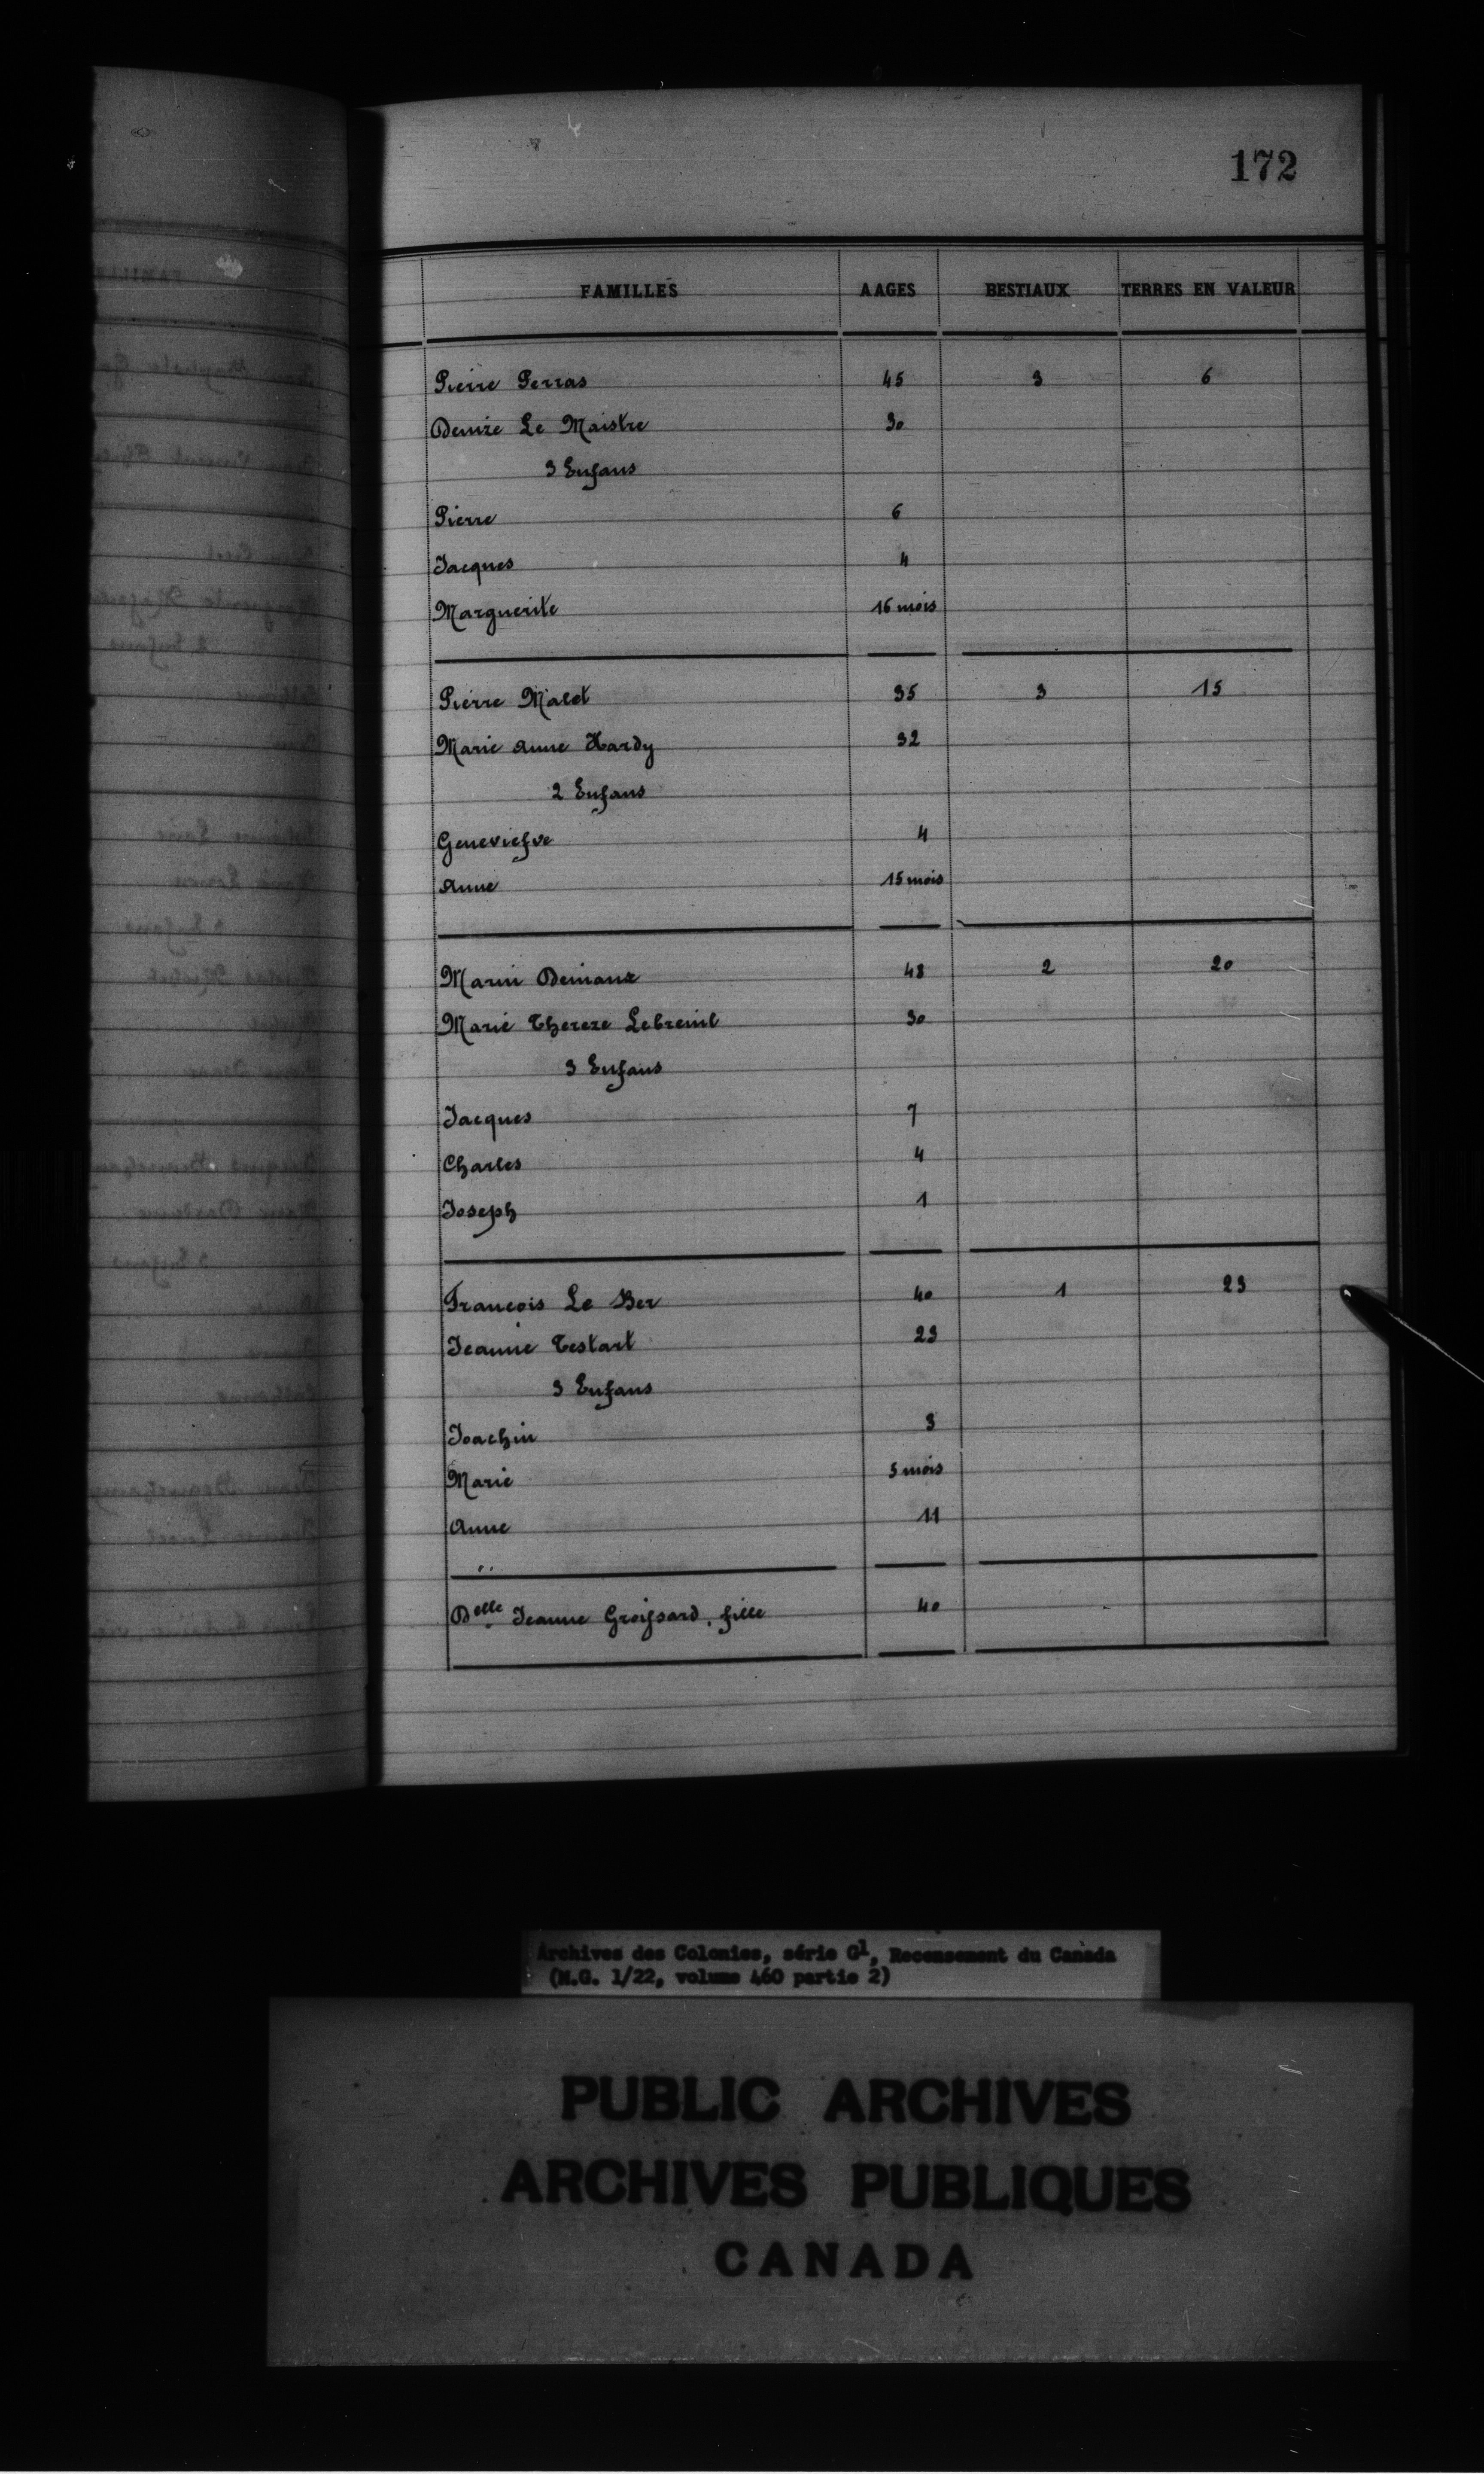 172
FAMILLES AAGES BESTIAUX TERRES EN VALEUR
Pierre Perras 45 3 6
Denize Le Maistre 30
3 Enfans
Pierre 6
Jacques 4
Marguerite 16 mois
Pierre Malet 35 3 15
Marie Anne Hardy 32
2 Enfans
Geneviefve 4
Anne 15 mois
Marin Deniaux 48 2 20
Marie Thereze Lebreuil 30
3 Enfans
Jacques 7
Charles 4
Joseph 1
François Le Ber 40 1 23
Jeanne Testart 23
3 Enfans
Joachin 3
Marie 5 mois
Anne 11
Delle Jeanne Groissard, fille 40
Archives des Colonies, série G1, Recensement du Canada
(M.G. 1/22, volume 460 partie 2)
PUBLIC ARCHIVES
ARCHIVES PUBLIQUES
CANADA